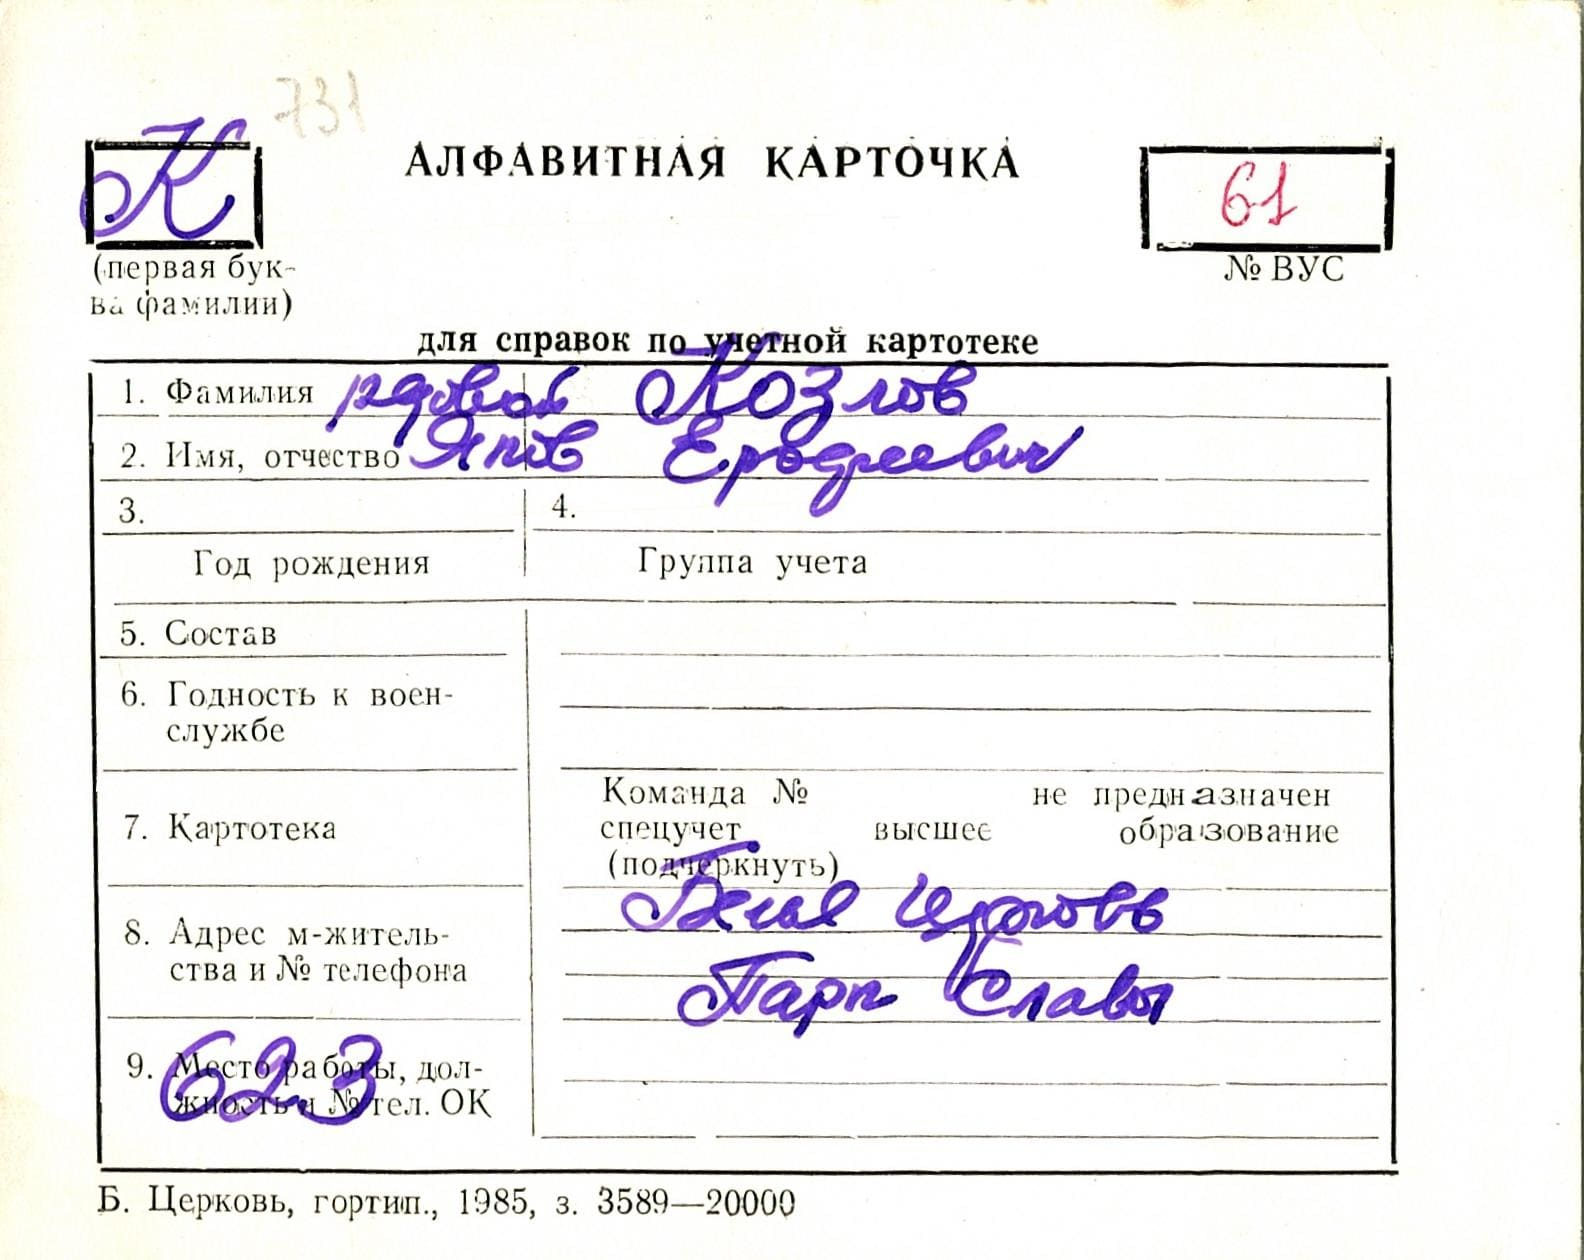 731
К
АЛФАВИТНАЯ КАРТОЧКА
61
(первая бук-
ва фамилии)
№ ВУС
для справок по учетной картотеке
1. Фамилия рядовой Козлов
2. Имя, отчество Яков Ерофеевич
3.
4.
Год рождения
Группа учета
5. Состав
6. Годность к воен-
службе
7. Картотека
Команда № не предназначен
спецучет высшее образование
(подчеркнуть)
8. Адрес м-житель-
ства и № телефона
Белая Церковь
Парк Славы
9. Место работы, дол-
жность и № тел. ОК
623
Б. Церковь, гортип., 1985, з. 3589—20000